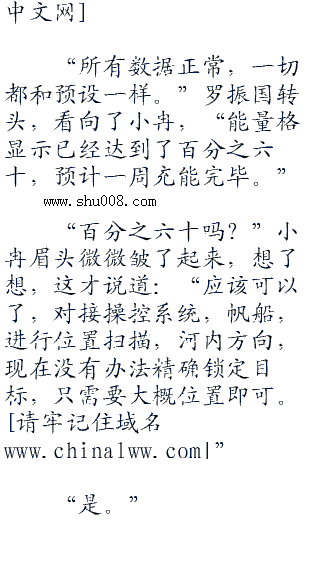 中文网]
“所有数据正常，一切
都和预设一样。”罗振国转
头，看向了小冉，“能量格
显示已经达到了百分之六
十，预计一周充能完毕。”
www.shu008.com
“百分之六十吗？”小
冉眉头微微皱了起来，想了
想，这才说道：“应该可以
了，对接操控系统，帆船，
进行位置扫描，河内方向，
现在没有办法精确锁定目
标，只需要大概位置即可。
[请牢记住域名
www.china1ww.com|”
“是。”